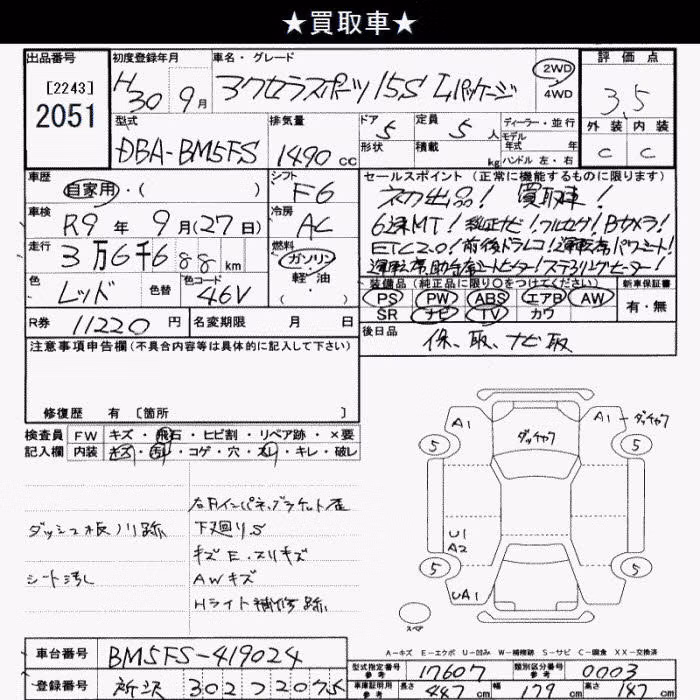 ★買取車★
出品番号
[2243]
2051
初度登録年月
H30 9月
車名・グレード
アクセラスポーツ 15S Lパッケージ
2WD
4WD
評価点
3.5
外装 内装
C C
型式
DBA-BM5FS
排気量
1490 cc
ドア 5
形状
定員 5人
積載 kg
ディーラー・並行
モデル年式 年式
ハンドル 左・右
車歴
自家用・( )
シフト
F6
車検
R9年 9月(27日)
冷房
AC
走行
3万6千688km
燃料
ガソリン・軽油
( ・ )
色
レッド
色替
色コード
46V
R券 11220円
名変期限 月 日
セールスポイント(正常に機能するものに限ります)
初出品! 買取車!
6速MT!純正ナビ!フルセグ!Bカメラ!
ETC2.0!前後ドラレコ!運転席パワーシート!
運転席助手席シートヒーター!ステアリングヒーター!
装備品(純正品に限り○をつけてください)
PS PW ABS エアB AW
SR ナビ TV カワ
新車保証書
有・無
後日品
保、取、ナビ取
注意事項申告欄(不具合内容等は具体的に記入して下さい)
修復歴 有 [箇所 ]
検査員記入欄
FW キズ・飛石・ヒビ割・リペア跡・×要
内装 キズ・汚レ・コゲ・穴・スレ・キレ・破レ
ダッシュ板ノリ跡
シート汚し
下廻りS
キズE・スリキズ
AWキズ
Hライト補修跡
A1
ダッチャク
A1-ダッチャク
5
5
5
5
U1
A2
UA1
スペア
A-キズ E-エクボ U-凹み W-補修跡 S-サビ C-腐食 XX-交換済
車台番号
BM5FS-419024
登録番号
所沢 302 フ 2075
型式指定番号
参考
17607
類別区分番号
参考
0003
車庫証明用
参考
長さ 447cm
幅 179cm
高さ 147cm